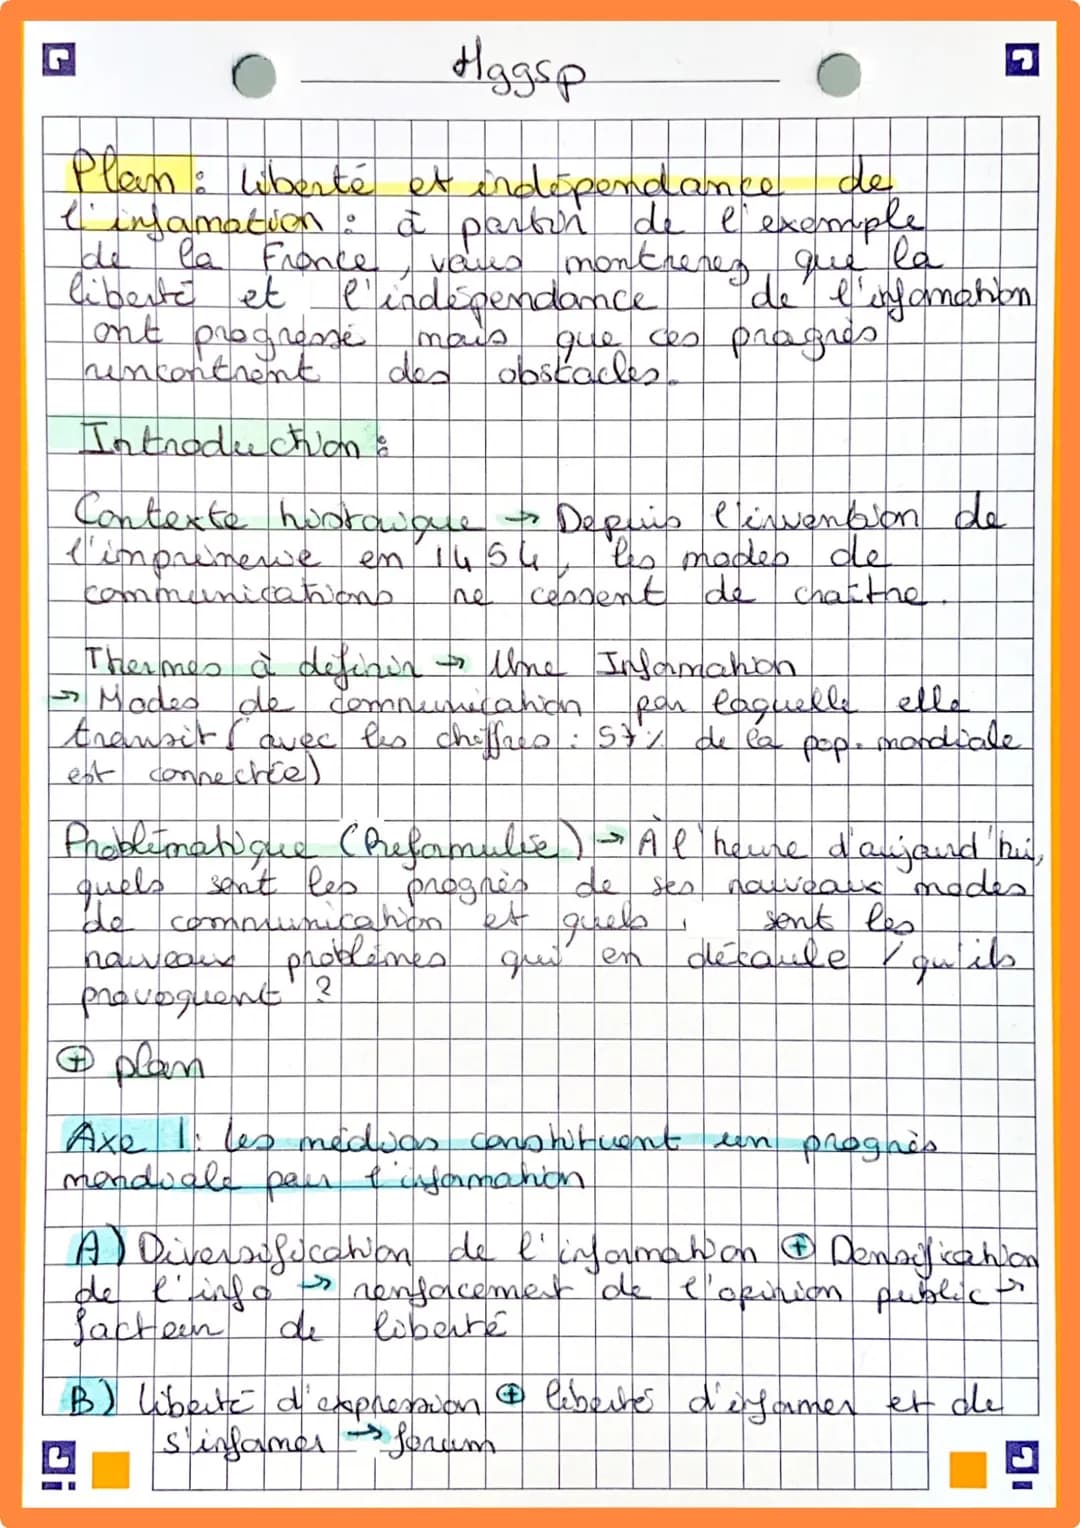 Hggsp
Plan : liberté et indépendance de
l'infamation : à partir de l'exemple
de la France, vous montrerez que la
liberté et l'indépendance de l'infamation
ont progressé mais que ces progrès
rencontrent des obstacles.
Introduction :
Contexte historique → Depuis l'invention de
l'imprimerie en 1454, les modes de
communications ne cessent de craître.
Thermes à définir → Une Information
→ Modes de communication par laquelle elle
transit (avec les chiffres : 57% de la pop. mondiale
est connectée)
Problématique (Reformulée) → À l'heure d'aujourd'hui,
quels sont les progrès de ses nouveaux modes
de communication et quels sont les
nouveaux problèmes qui en décaule / qu'ils
provoquent ?
⊕ plan
Axe 1: les médias constituent un progrès
mondiale pour l'information
A) Diversification de l'information ⊕ Densification
de l'info → renforcement de l'opinion public →
facteur de liberté
B) liberté d'expression ⊕ libertés d'informer et de
s'informer → forum